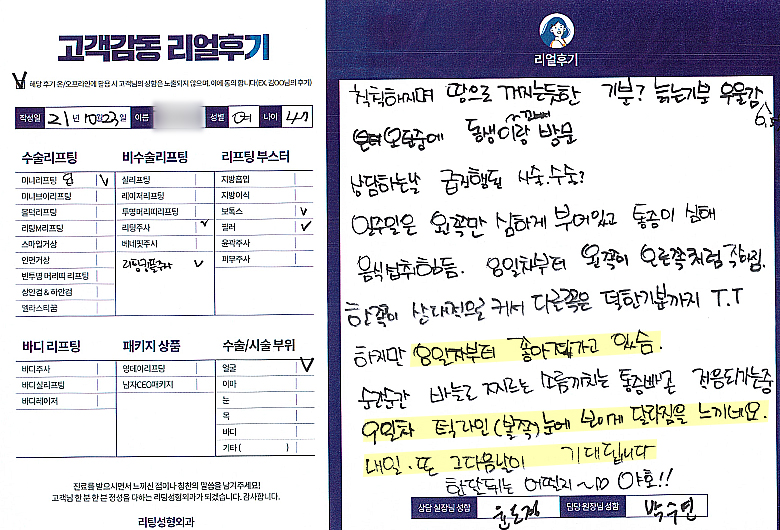 고객감동 리얼후기
V 해당 후기 온/오프라인에 활용 시 고객님의 성함은 노출되지 않으며, 이에 동의 합니다(EX. 김OO님의 후기)
작성일 21년 10월 23일 이름 성별 여 나이 47
수술리프팅 비수술리프팅 리프팅 부스터
미니리프팅 V 실리프팅 지방흡입
미니브이리프팅 레이저리프팅 지방이식
불독리프팅 투명머리띠리프팅 보톡스 V
리팅M리프팅 리팅주사 V 필러 V
스마일거상 베네핏주사 윤곽주사
안면거상 V 피부주사
반투명 머리띠 리프팅
상안검 & 하안검
엘라스티꿈
바디 리프팅 패키지 상품 수술/시술 부위
바디주사 영데이리프팅 얼굴 V
바디실리프팅 남자CEO패키지 이마
바디레이저 눈
목
바디
기타 ( )
진료를 받으시면서 느끼신 점이나 칭찬의 말씀을 남기주세요!
고객님 한 분 한 분 정성을 다하는 리팅성형외과가 되겠습니다. 감사합니다.
리팅성형외과
리얼후기
칙칙해지며 땅으로 꺼지는듯한 기분? 늙는기분 우울감
오던중에 동생이랑 방문
상담하는날 급진행된 시술.수술?
일주일은 왼쪽만 심하게 부어있고 통증이 심해
음식섭취힘듬. 8일차부터 왼쪽이 오른쪽처럼 작아짐.
한쪽이 상대적으로 커서 다른쪽은 덜한기분까지 T.T
하지만 8일차부터 좋아지가고 있슴.
순간순간 바늘로 찌르는 소름끼치는 통증빼곤 적응되가는중
9일차 턱라인(볼쪽)눈에 보이게 달라짐을 느끼네요.
내일.또 그다음날이 기대됩니다
한달뒤는 어떨지~ 야호!!
상담 실장님 성함 담당 원장님 성함 박수연